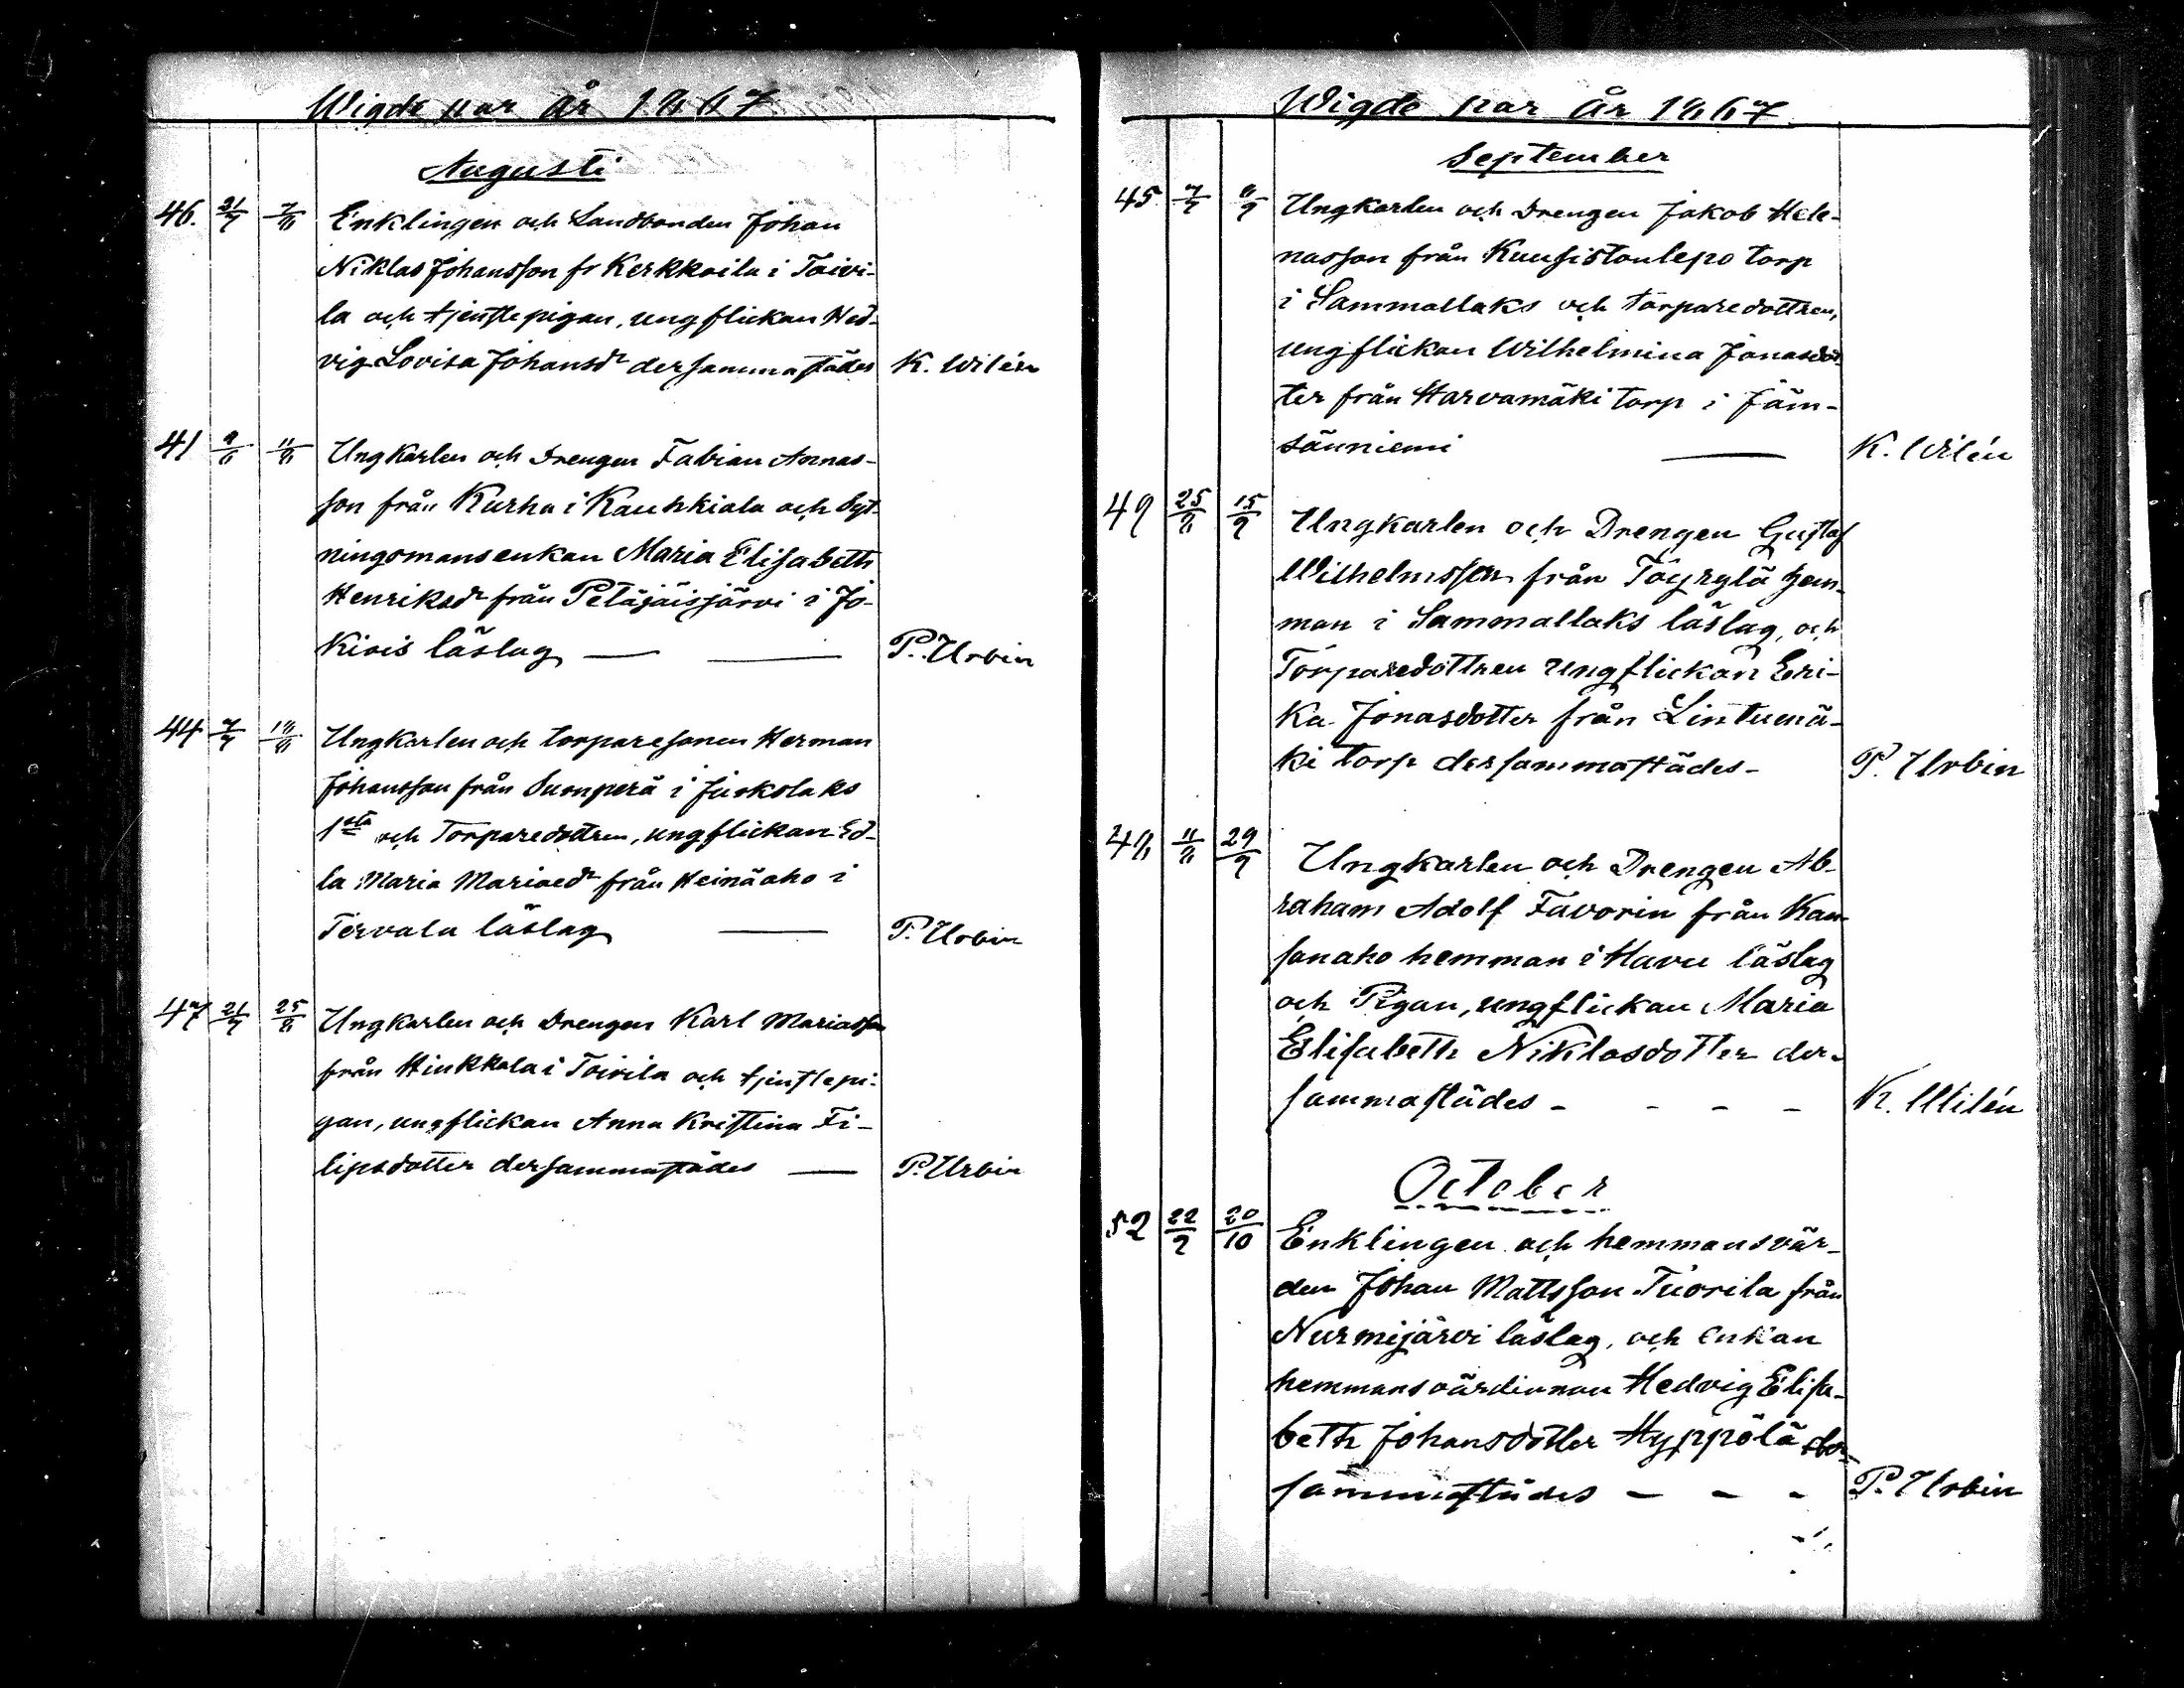 Wigde par År 1867
Augusti
46. 21/7 7/8 Enklingen och Landbonden Johan
Niklas Johansson fr Kerkkoila i Toivi-
la och tjenstepigan, ungflickan Hed-
vig Lovisa Johansdr dersammastädes K. Wilén
41 4/8 11/8 Ungkarlen och Drengen Fabian Annas-
son från Kurha i Kauhkiala och Syt-
ningsmansenkan Maria Elisabeth
Henriksdr från Petäjäisjärvi i Jo-
kiois läslag — — P. Urbin
44 7/7 18/8 Ungkarlen och torparesonen Herman
Johansson från Sumperä i Juokslaks
1sta och Torparedottren, ungflickan Ed-
la Maria Mariaedr från Heinäaho i
Tervala läslag — P. Urbin
47 21/7 25/8 Ungkarlen och Drengen Karl Mariasson
från Hinkkala i Toivila och tjenstepi-
gan, ungflickan Anna Kristina Fi-
lipsdotter dersammastädes — P. Urbin
Wigde par År 1867
September
45 7/7 8/9 Ungkarlen och Drengen Jakob Hele-
nasson från Kuusistonlepo torp
i Sammallaks och torparedottren,
ungflickan Wilhelmina Jonasdot-
ter från Harvamäki torp i Jäm-
sänniemi — K. Wilén
49 25/8 15/9 Ungkarlen och Drengen Gustaf
Wilhelmsson från Töyrylä hem-
man i Sammallaks läslag, och
Torparedottren ungflickan Eri-
ka Jonasdotter från Lintumä-
ki torp dersammastädes - P. Urbin
48 11/8 29/9 Ungkarlen och Drengen Ab-
raham Adolf Favorin från Kan-
sanaho hemman i Havu läslag
och Pigan, ungflickan Maria
Elisabeth Niklasdotter der-
sammastädes - - - - K. Wilén
October
52 22/9 20/10 Enklingen och hemmansvär-
den Johan Mattsson Tuorila från
Nurmijärvi läslag, och enkan
hemmansvärdinnan Hedvig Elisa-
beth Johansdotter Hyppölä der-
sammastädes - - - P. Urbin